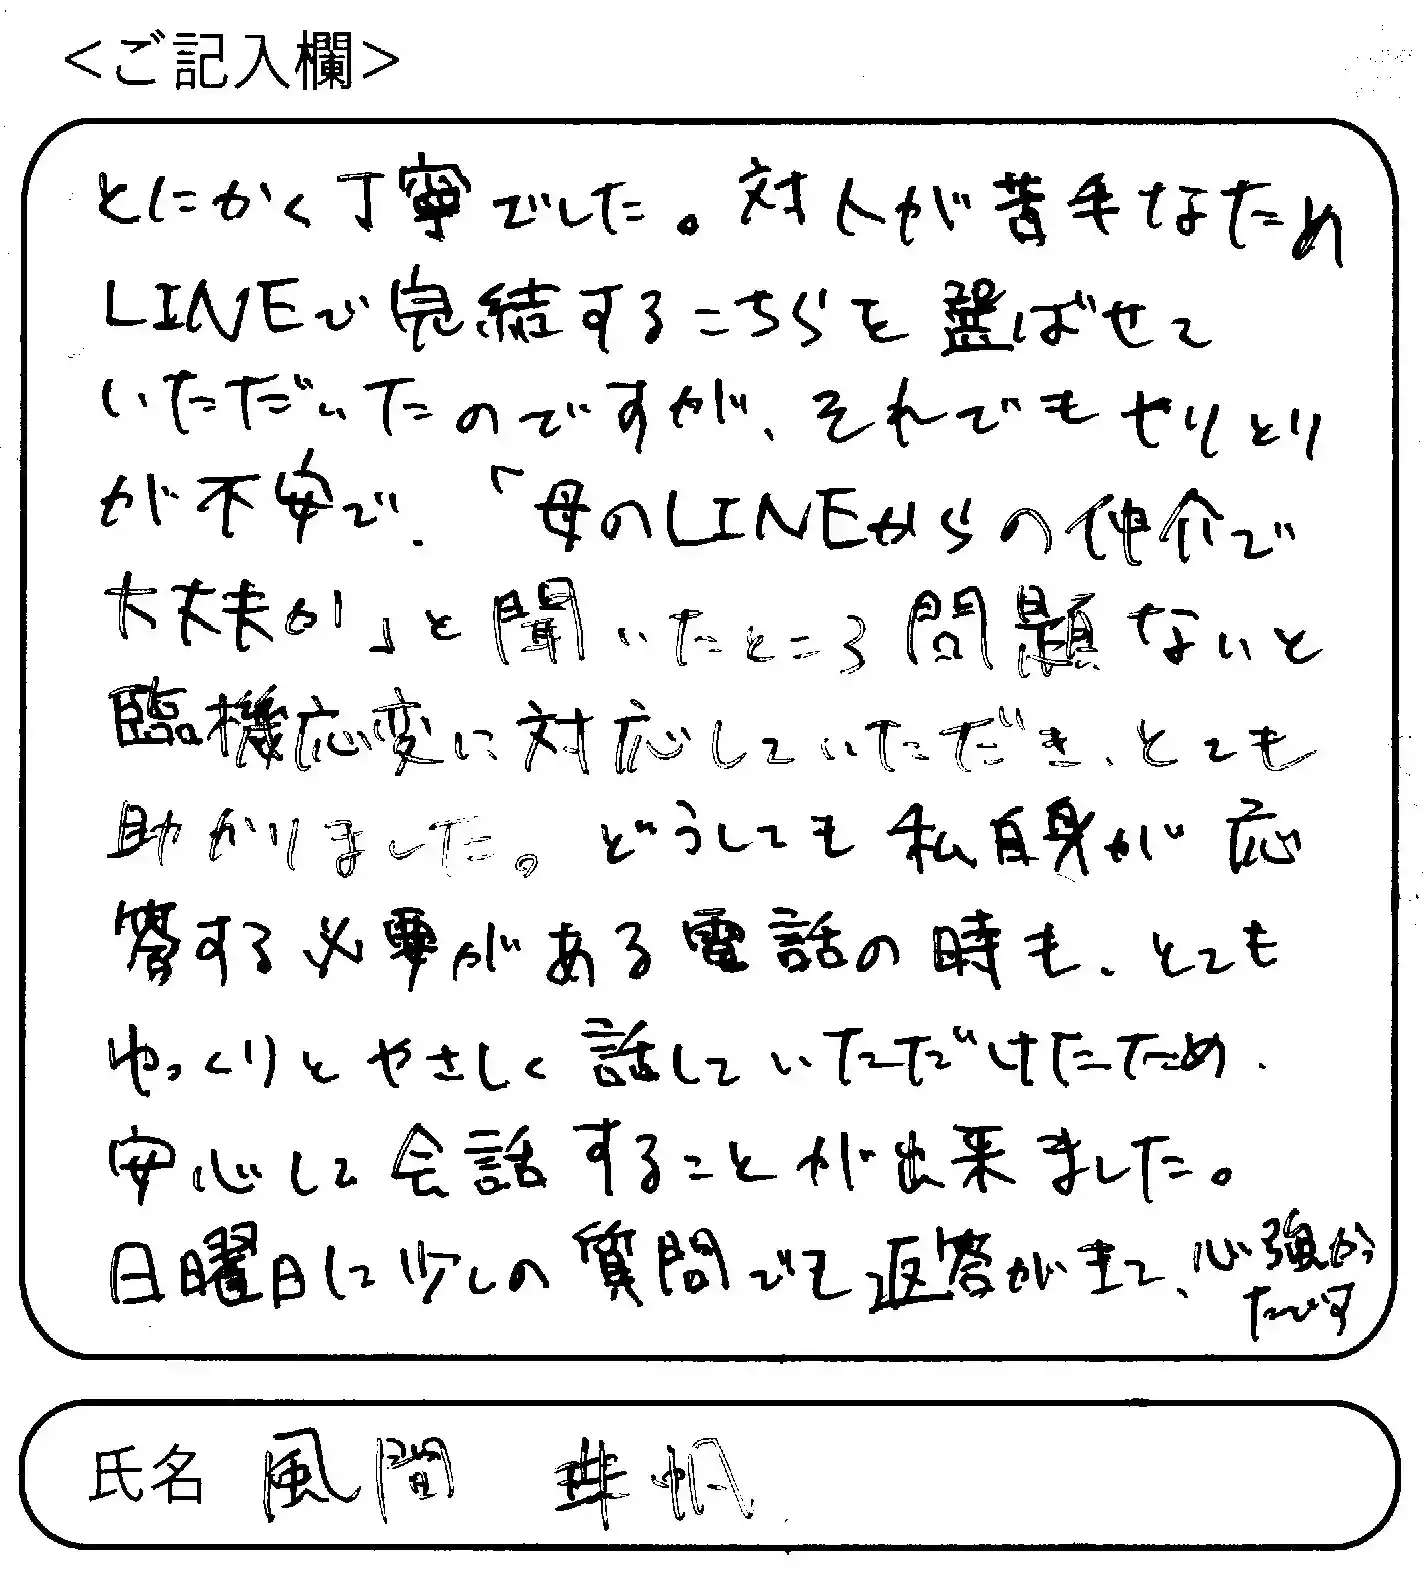 <ご記入欄>
とにかく丁寧でした。対人が苦手なため
LINEで完結するこちらを選ばせて
いただいたのですが、それでもやりとり
が不安で、「母のLINEからの仲介で
大丈夫か」と聞いたところ問題ないと
臨機応変に対応していただき、とても
助かりました。どうしても私自身が応
答する必要がある電話の時も、とても
ゆっくりとやさしく話していただけたため、
安心して会話することが出来ました。
日曜日に少しの質問でも返答がきて、心強かっ
たです
氏名 風間